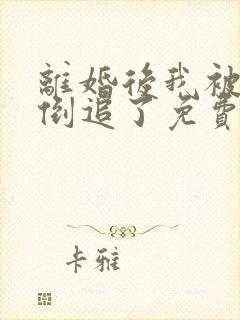 離婚後我被
倒追了免費
卡雅